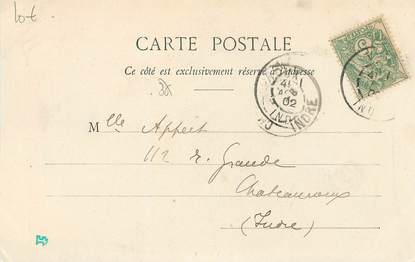 CARTE POSTALE
Ce côté est exclusivement réservé à l'adresse
Mlle Appert
112 r. Grande
Chateauroux
(Indre)
02
INDRE